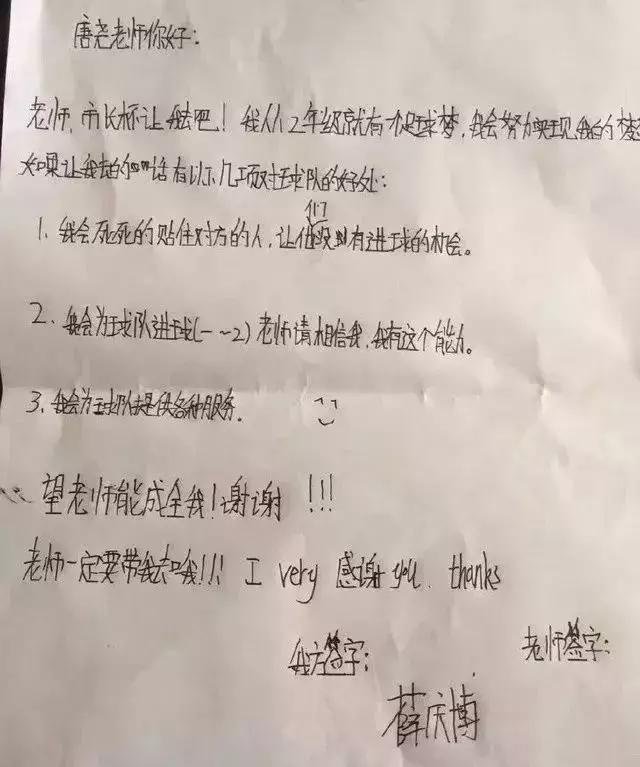 唐尧老师你好:
老师,市长杯让我去吧!我从2年级就有个足球梦,我会努力实现我的梦
如果让我去的话有以下几项对球队的好处:
1、我会死死的贴住对方的人,让他们没有进球的机会。
2、我会为球队进球(一~2)老师请相信我,我有这个能力。
3、我会为球队提供各种服务.
望老师能成全我!谢谢!!!
老师一定要带我去哦!!! I very 感谢 you. thanks
我方签字: 老师签字:
薛庆博